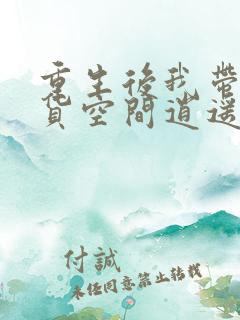 重生後我帶
貨空間逍遙
付誠
未經同意禁止轉載